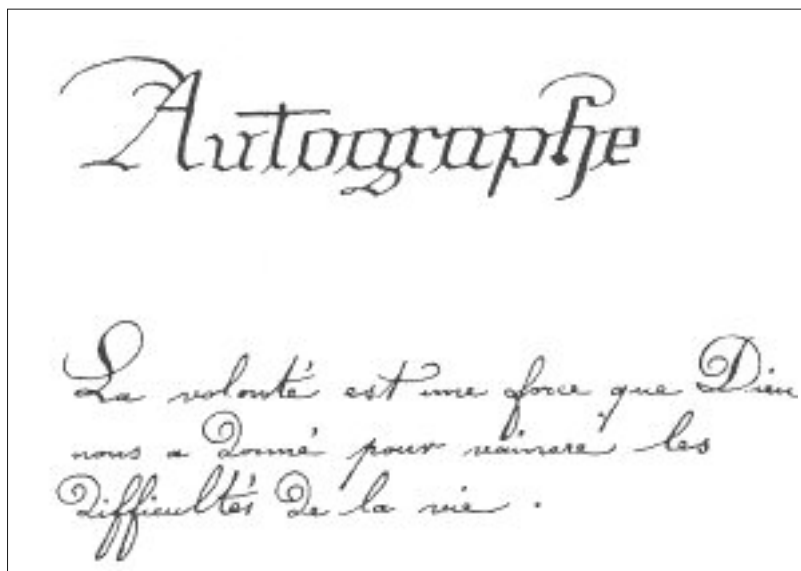 Autographe
La volonté est une force que Dieu
nous a donné pour vaincre les
difficultés de la vie.